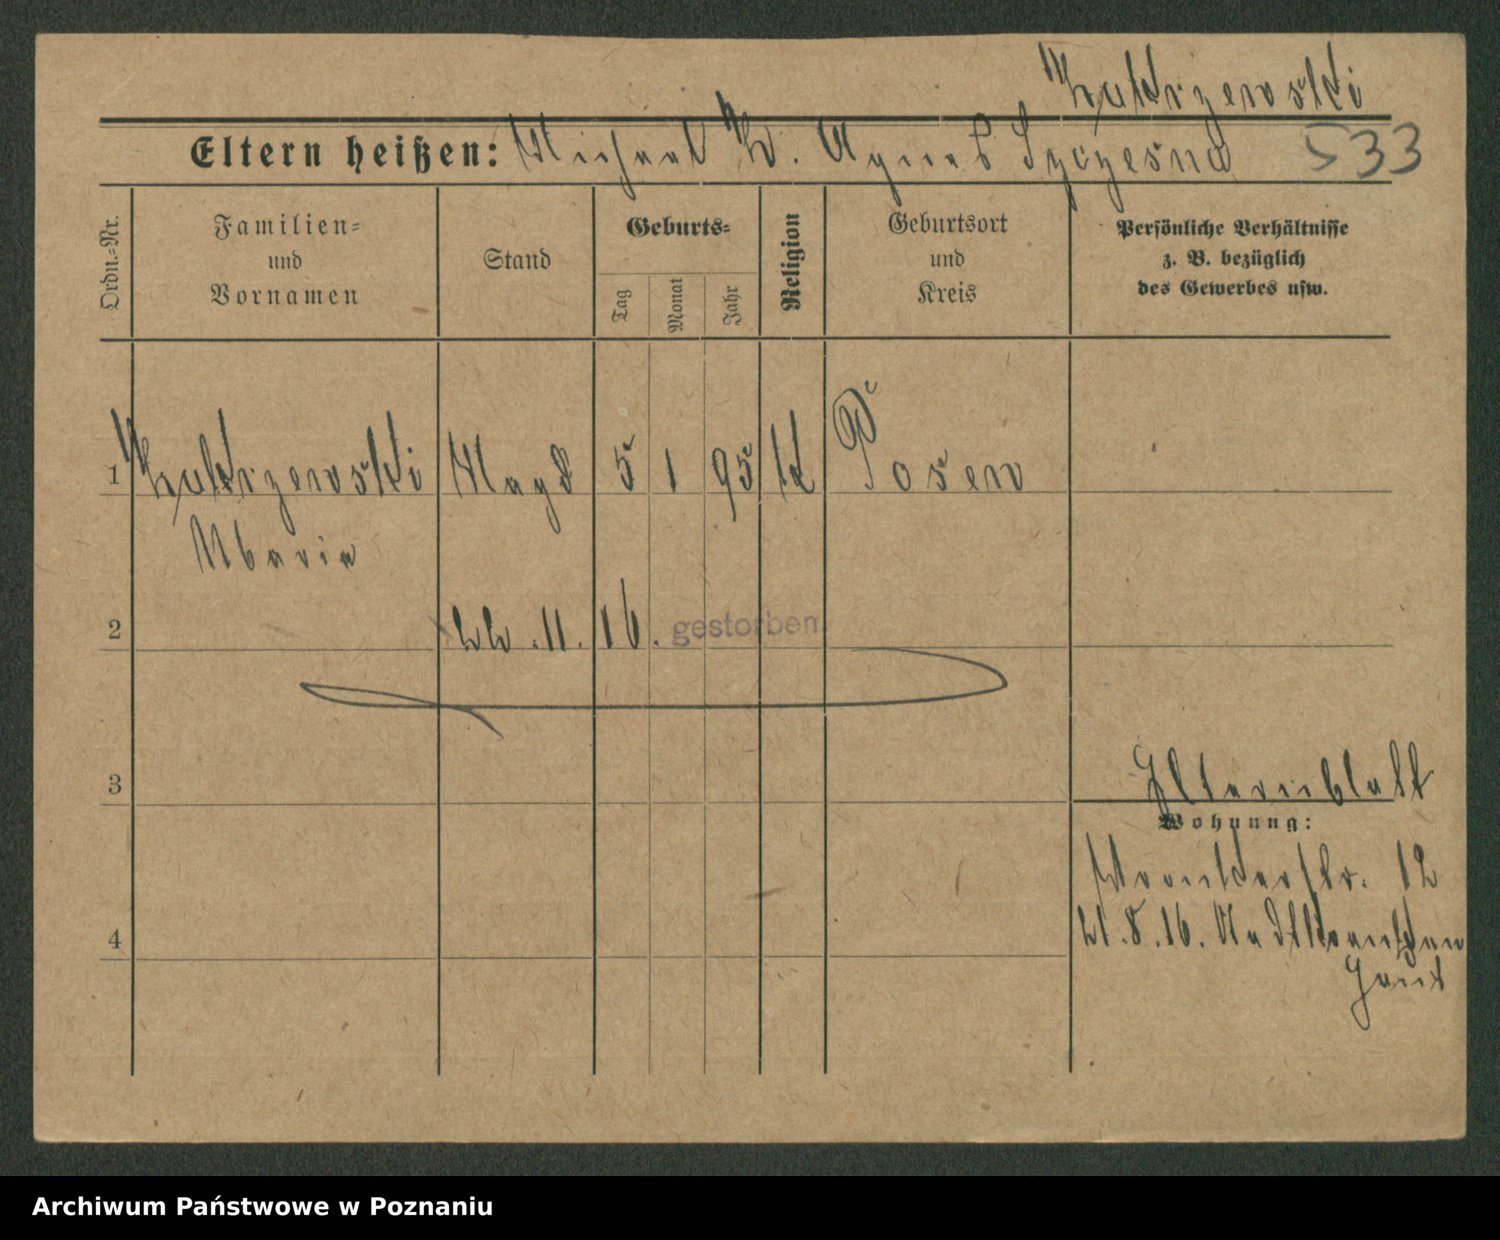 Zakrzewski
Eltern heißen: Michael Z. Agnes Szczesna 533
Ordn.-Nr.
Familien-
und
Vornamen
Stand
Geburts-
Tag
Monat
Jahr
Religion
Geburtsort
und
Kreis
Persönliche Verhältnisse
z. B. bezüglich
des Gewerbes usw.
1 Zakrzewski Magd 5 1 95 k Posen
Maria
2 22.11.16. gestorben.
3
Elternblatt
Wohnung:
Wronkerstr. 12
4 21.8.16. Stadtkranken
Haus
Archiwum Państwowe w Poznaniu